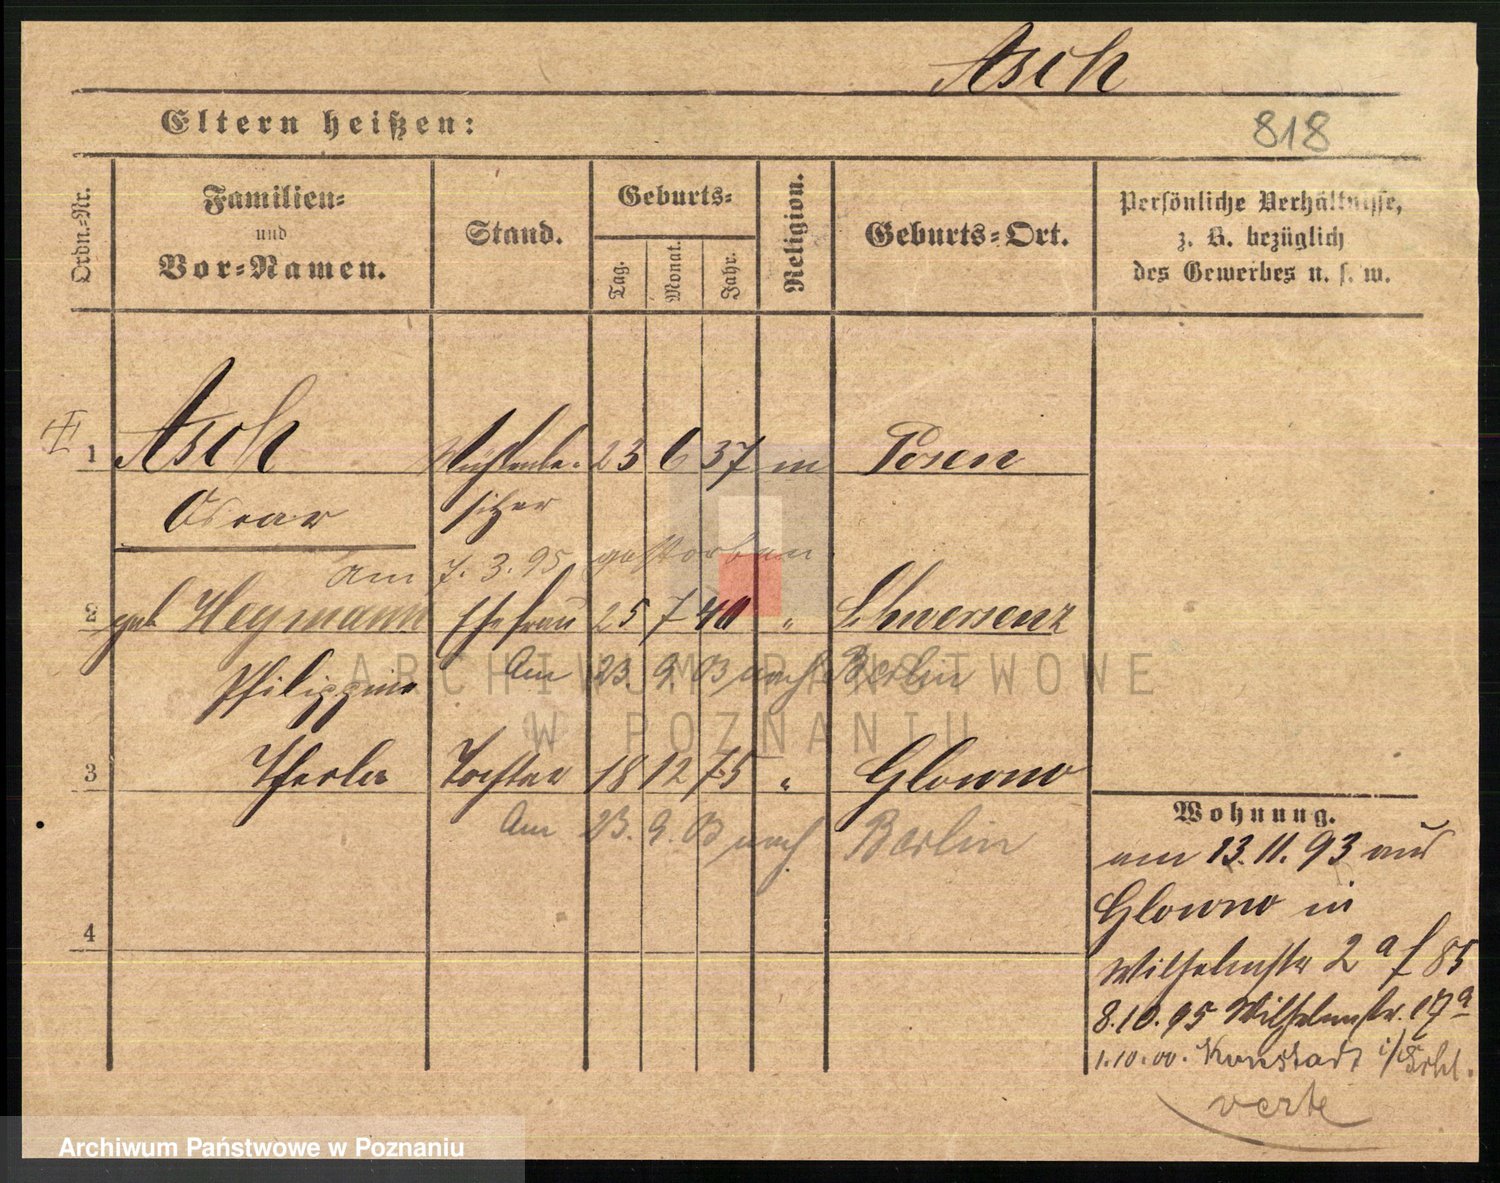 Asch
Eltern heißen:
818
Ordn.-Nr.
Familien-
und
Vor-Namen.
Stand.
Geburts-
Tag.
Monat.
Jahr.
Religion.
Geburts-Ort.
Persönliche Verhältnisse,
z. B. bezüglich
des Gewerbes u. s. w.
1 Asch 23 6 37 m Posen
Oscar sitzer
Am 7. 3. 95 gestorben.
2 geb Heymann Ehefrau 25 7 40 " Schwersenz
Am 23. 9. 03 nach Berlin
Philippine
3 Tochter 18 12 75 " Glowno
Am 23. 9. 03 nach Berlin
4
Wohnung.
am 13.11.93 aus
Glowno in
Wilhelmstr 2a f 85
8.10.95 Wilhelmstr. 17a
1.10.00. Konstadt
verte
ARCHIWUM PAŃSTWOWE
W POZNANIU
Archiwum Państwowe w Poznaniu